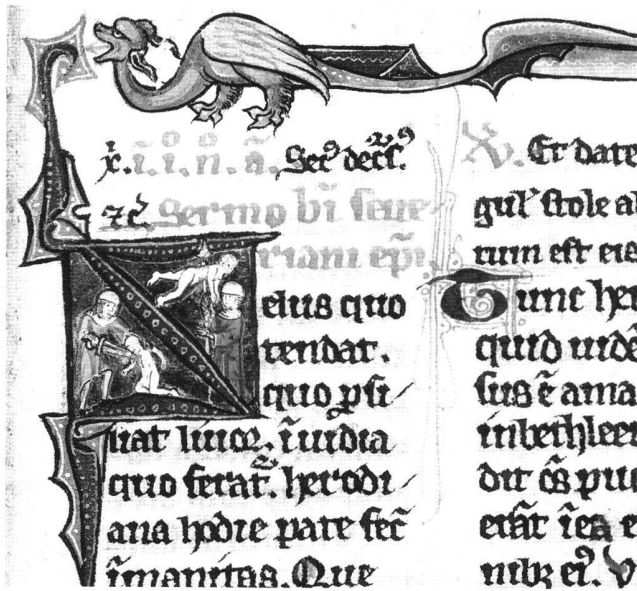 Sermo bi seue
riani epi.
elus quo
tendat.
quo psi
liat liuor. iuidia
quo ferat. herodi
ana hodie pate fec
imanitas. Que
Et date
gul stole al
tum est eis
Tunc her
quid uide
sus e ama
inbethleem
dit os pue
erat iea e
nibz ei. V